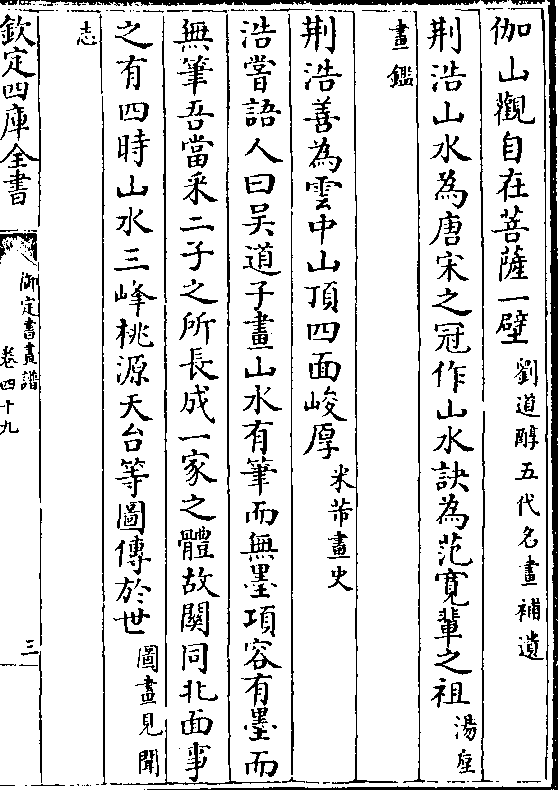 伽山觀自在菩薩一壁劉道醇五代名畫補遺
荆浩山水為唐宋之冠作山水訣為范寛輩之祖湯垕
畫鑑
荆浩善為雲中山頂四面峻厚米芾畫史
浩嘗語人曰吴道子畫山水有筆而無墨項容有墨而
無筆吾當釆二子之所長成一家之體故關同北面事
之有四時山水三峰桃源天台等圖傳於世圖畫見聞
志
欽定四庫全書
御定書畫譜
卷四十九
三